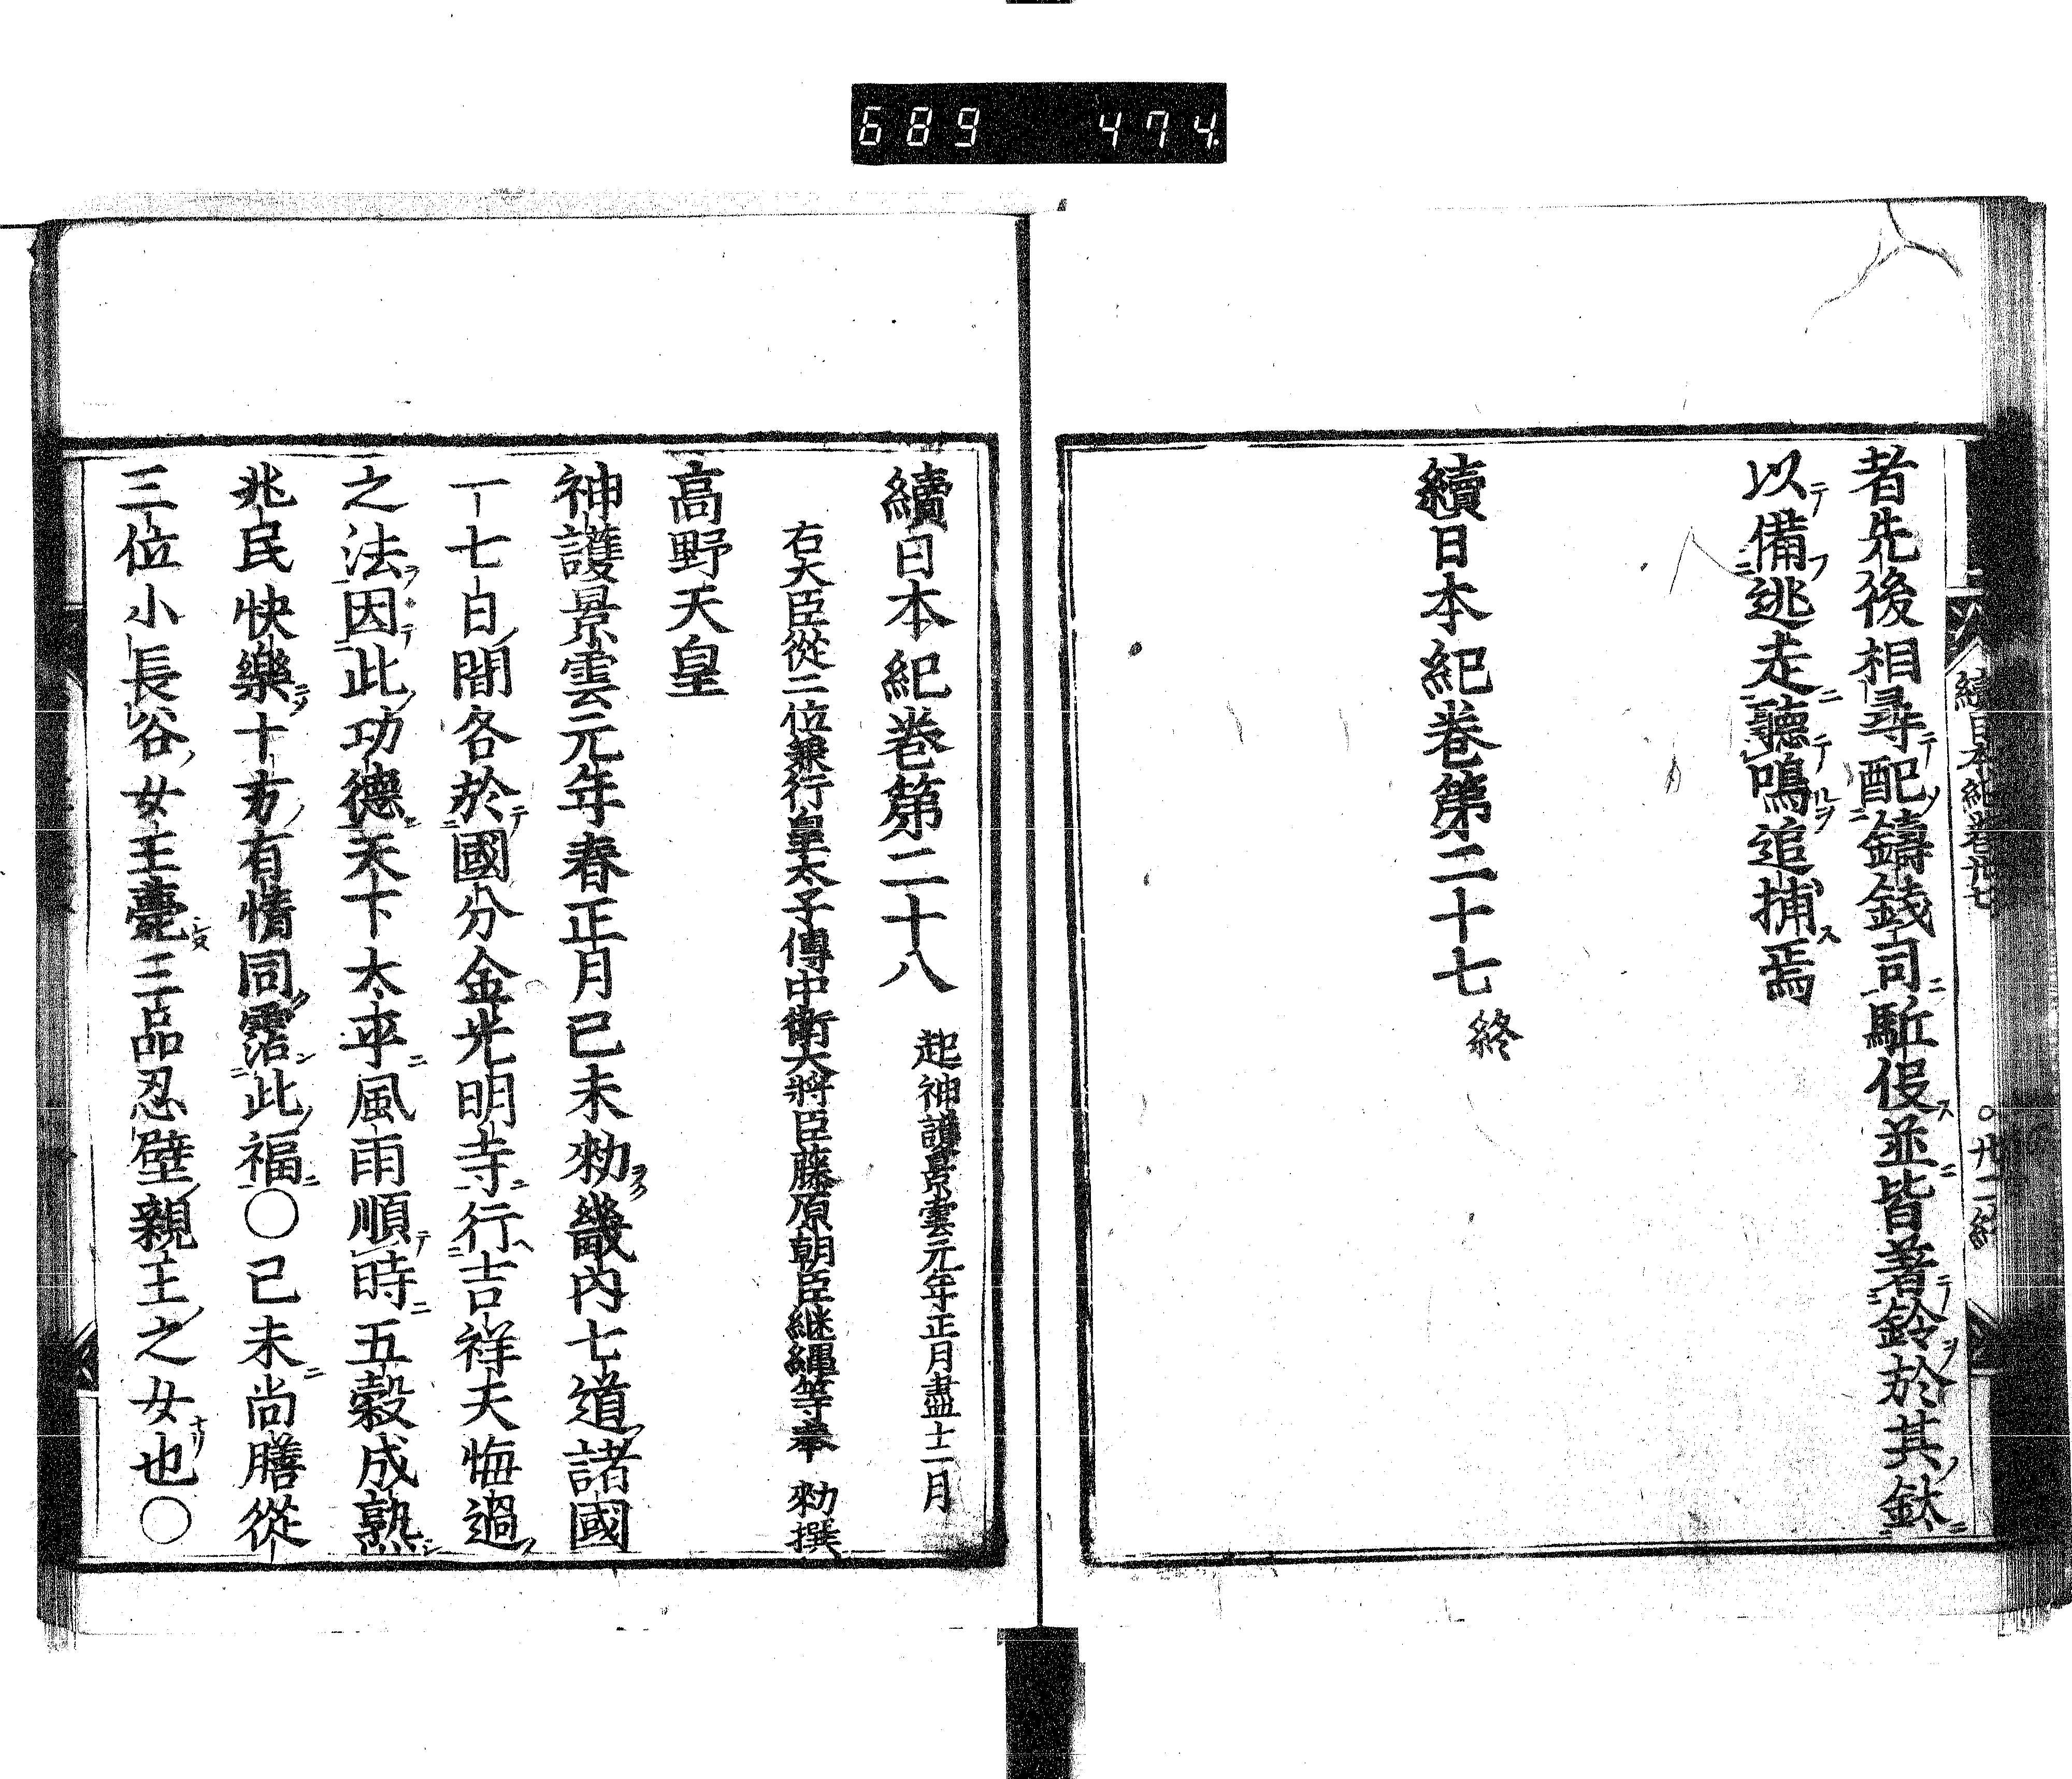 689 474
續日本紀卷廿七 ○廿二終
者先後相尋配鑄錢司駈伇並皆著鈴於其鈦
以備逃走聽鳴追捕焉
續日本紀卷第二十七 終
續日本紀卷第二十八 起神護景雲元年正月盡十二月
右大臣從二位兼行皇太子傅中衛大將臣藤原朝臣継縄等奉 勑撰
高野天皇
神護景雲元年春正月己未勑畿内七道諸國
一七日間各於國分金光明寺行吉祥天悔過
之法因此功德天下太平風雨順時五穀成熟
兆民快樂十方有情同霑此福○己未尚膳從
三位小長谷女王薨三品忍壁親王之女也○